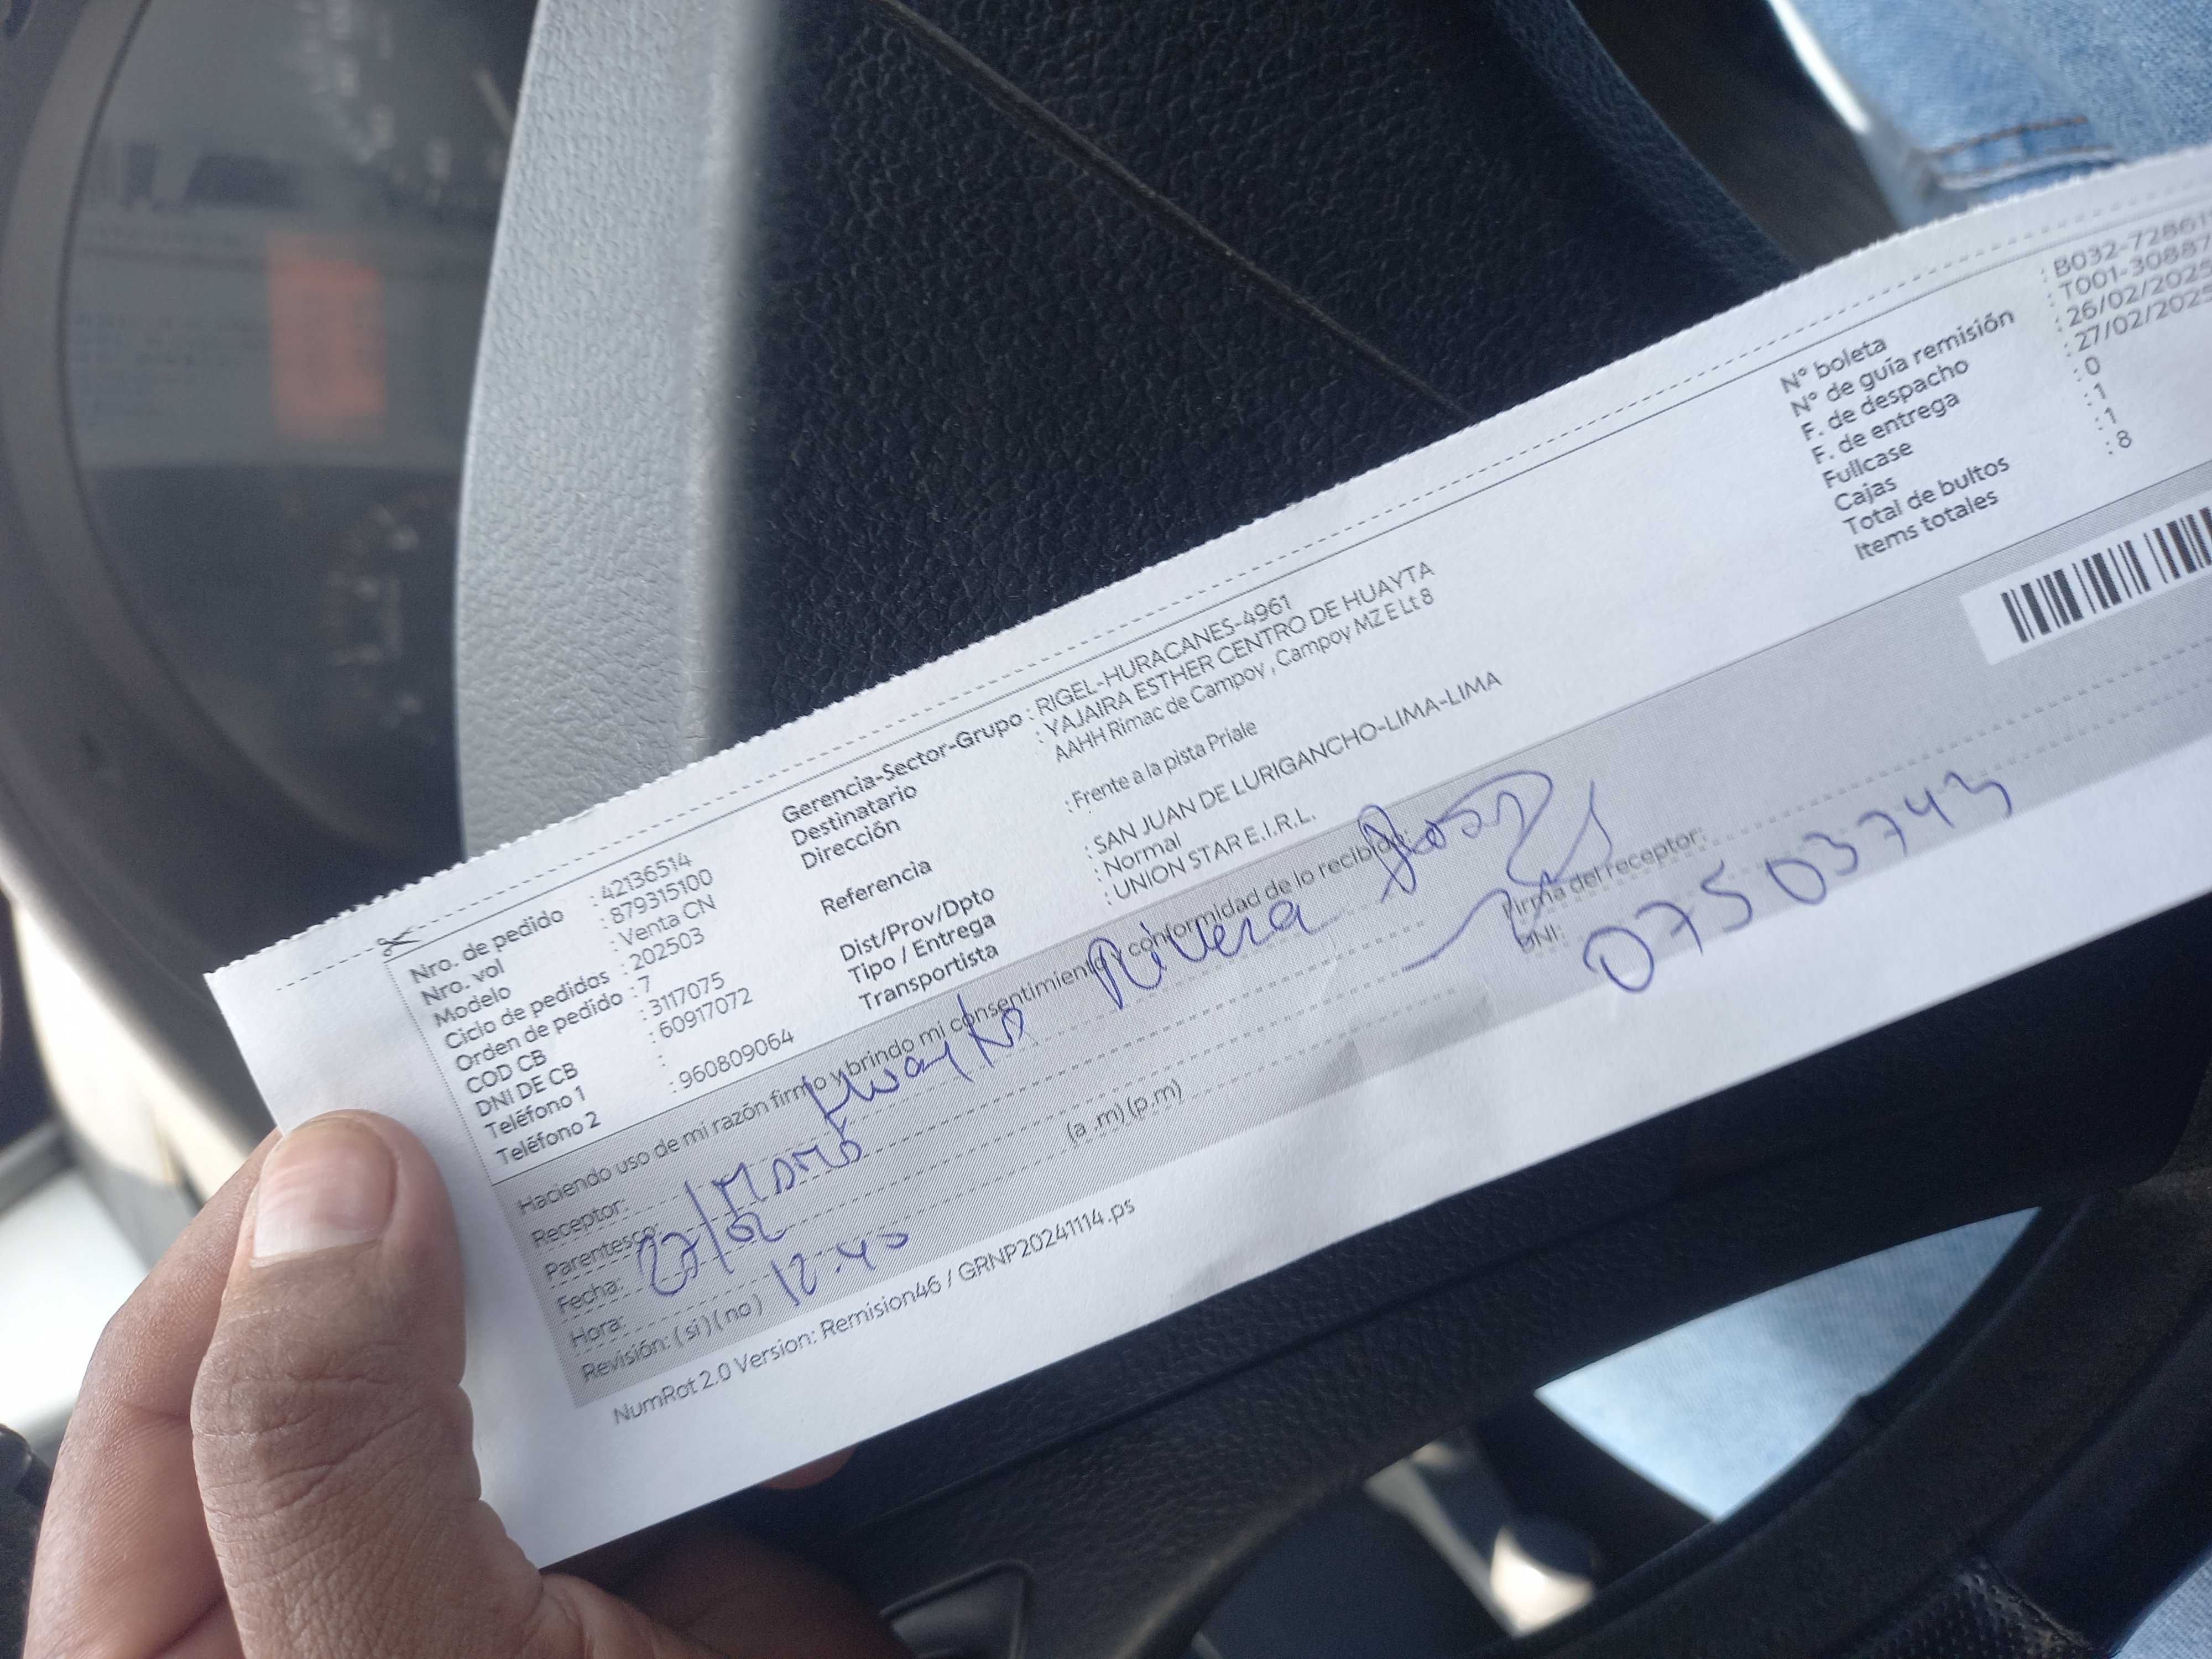 Nro. de pedido : 42136514
Nro. vol : 879315100
Modelo : Venta CN
Ciclo de pedidos : 202503
Orden de pedido : 7
COD CB : 3117075
DNI DE CB : 60917072
Teléfono 1 :
Teléfono 2 : 960809064
Gerencia-Sector-Grupo : RIGEL-HURACANES-4961
Destinatario : YAJAIRA ESTHER CENTRO DE HUAYTA
Dirección AAHH Rimac de Campoy , Campoy MZ E Lt 8
Referencia : Frente a la pista Priale
Dist/Prov/Dpto : SAN JUAN DE LURIGANCHO-LIMA-LIMA
Tipo / Entrega : Normal
Transportista : UNION STAR E.I.R.L.
N° boleta : B032-72861
N° de guía remisión : T001-30887
F. de despacho : 26/02/2025
F. de entrega : 27/02/2025
Fullcase : 0
Cajas : 1
Total de bultos : 1
Items totales : 8
Haciendo uso de mi razón firmo y brindo mi consentimiento y conformidad de lo recibido:
Receptor: Huayta Rivera
Parentesco:
Fecha: 27/02
Hora: 12:40 (a .m) (p.m)
Revisión: ( si ) ( no )
Firma del receptor:
DNI: 07503743
NumRot 2.0 Version: Remision46 / GRNP20241114.ps